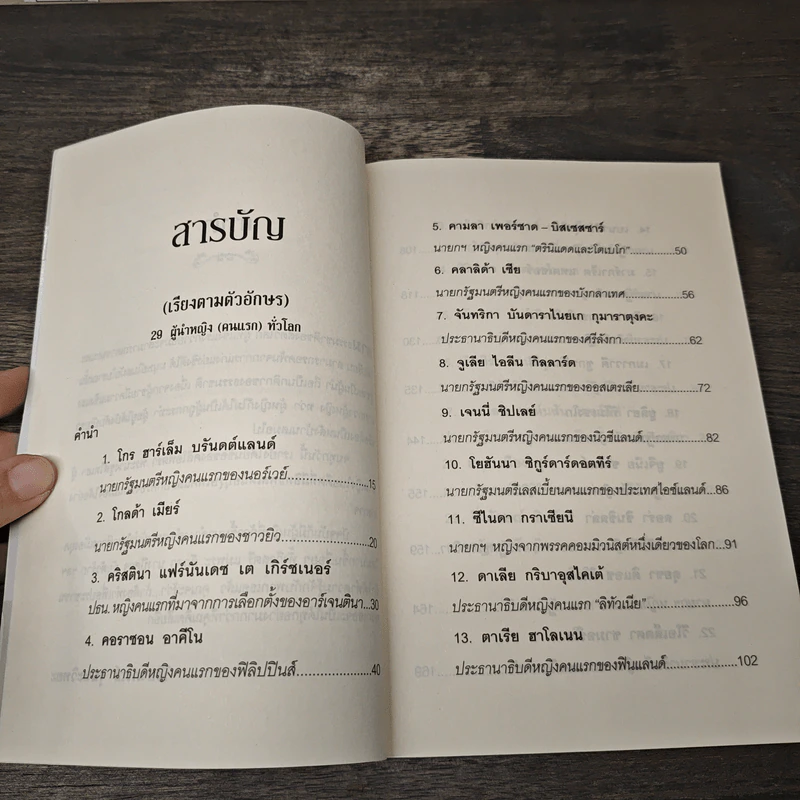 สารบัญ
(เรียงตามตัวอักษร)
29 ผู้นำหญิง (คนแรก) ทั่วโลก
คำนำ
1. โกร ฮาร์เล็ม บรันดต์แลนด์
นายกรัฐมนตรีหญิงคนแรกของนอร์เวย์.....................15
2. โกลด้า เมียร์
นายกรัฐมนตรีหญิงคนแรกของชาวยิว.....................20
3. คริสตินา แฟร์นันเดซ เด เกิร์ชเนอร์
ปธน. หญิงคนแรกที่มาจากการเลือกตั้งของอาร์เจนตินา...30
4. คอราซอน อาคีโน
ประธานาธิบดีหญิงคนแรกของฟิลิปปินส์..................40
5. คามลา เพอร์ซาด – บิสเซสซาร์
นายกฯ หญิงคนแรก "ตรินิแดดและโตเบโก"..............50
6. คลาลิด้า เซีย
นายกรัฐมนตรีหญิงคนแรกของบังกลาเทศ................56
7. จันทริกา บันดาราไนยเก กุมาราตุงคะ
ประธานาธิบดีหญิงคนแรกของศรีลังกา....................62
8. จูเลีย ไอลีน กิลลาร์ด
นายกรัฐมนตรีหญิงคนแรกของออสเตรเลีย................72
9. เจนนี่ ชิปเลย์
นายกรัฐมนตรีหญิงคนแรกของนิวซีแลนด์..................82
10. โยฮันนา ซิกูร์ดาร์ดอตทีร์
นายกรัฐมนตรีเลสเบี้ยนคนแรกของประเทศไอซ์แลนด์...86
11. ซีไนดา กราเซียนี
นายกฯ หญิงจากพรรคคอมมิวนิสต์หนึ่งเดียวของโลก...91
12. ดาเลีย กริบาอุสไคเต้
ประธานาธิบดีหญิงคนแรก "ลิทัวเนีย"......................96
13. ตาเรีย ฮาโลเนน
ประธานาธิบดีหญิงคนแรกของฟินแลนด์.................102